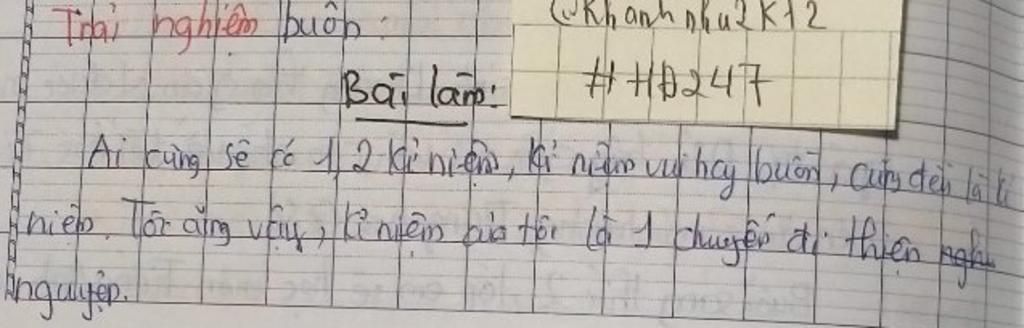 Trải nghiệm buồn:
(:Khanhnhu2k12
#HĐ247
Bài làm:
Ai cũng sẽ có 1, 2 kỉ niệm, kỉ niệm vui hay buồn, cũng đều là kỉ
niệm. Tôi cũng vậy, kỉ niệm của tôi là 1 chuyến đi thiện
nguyện.